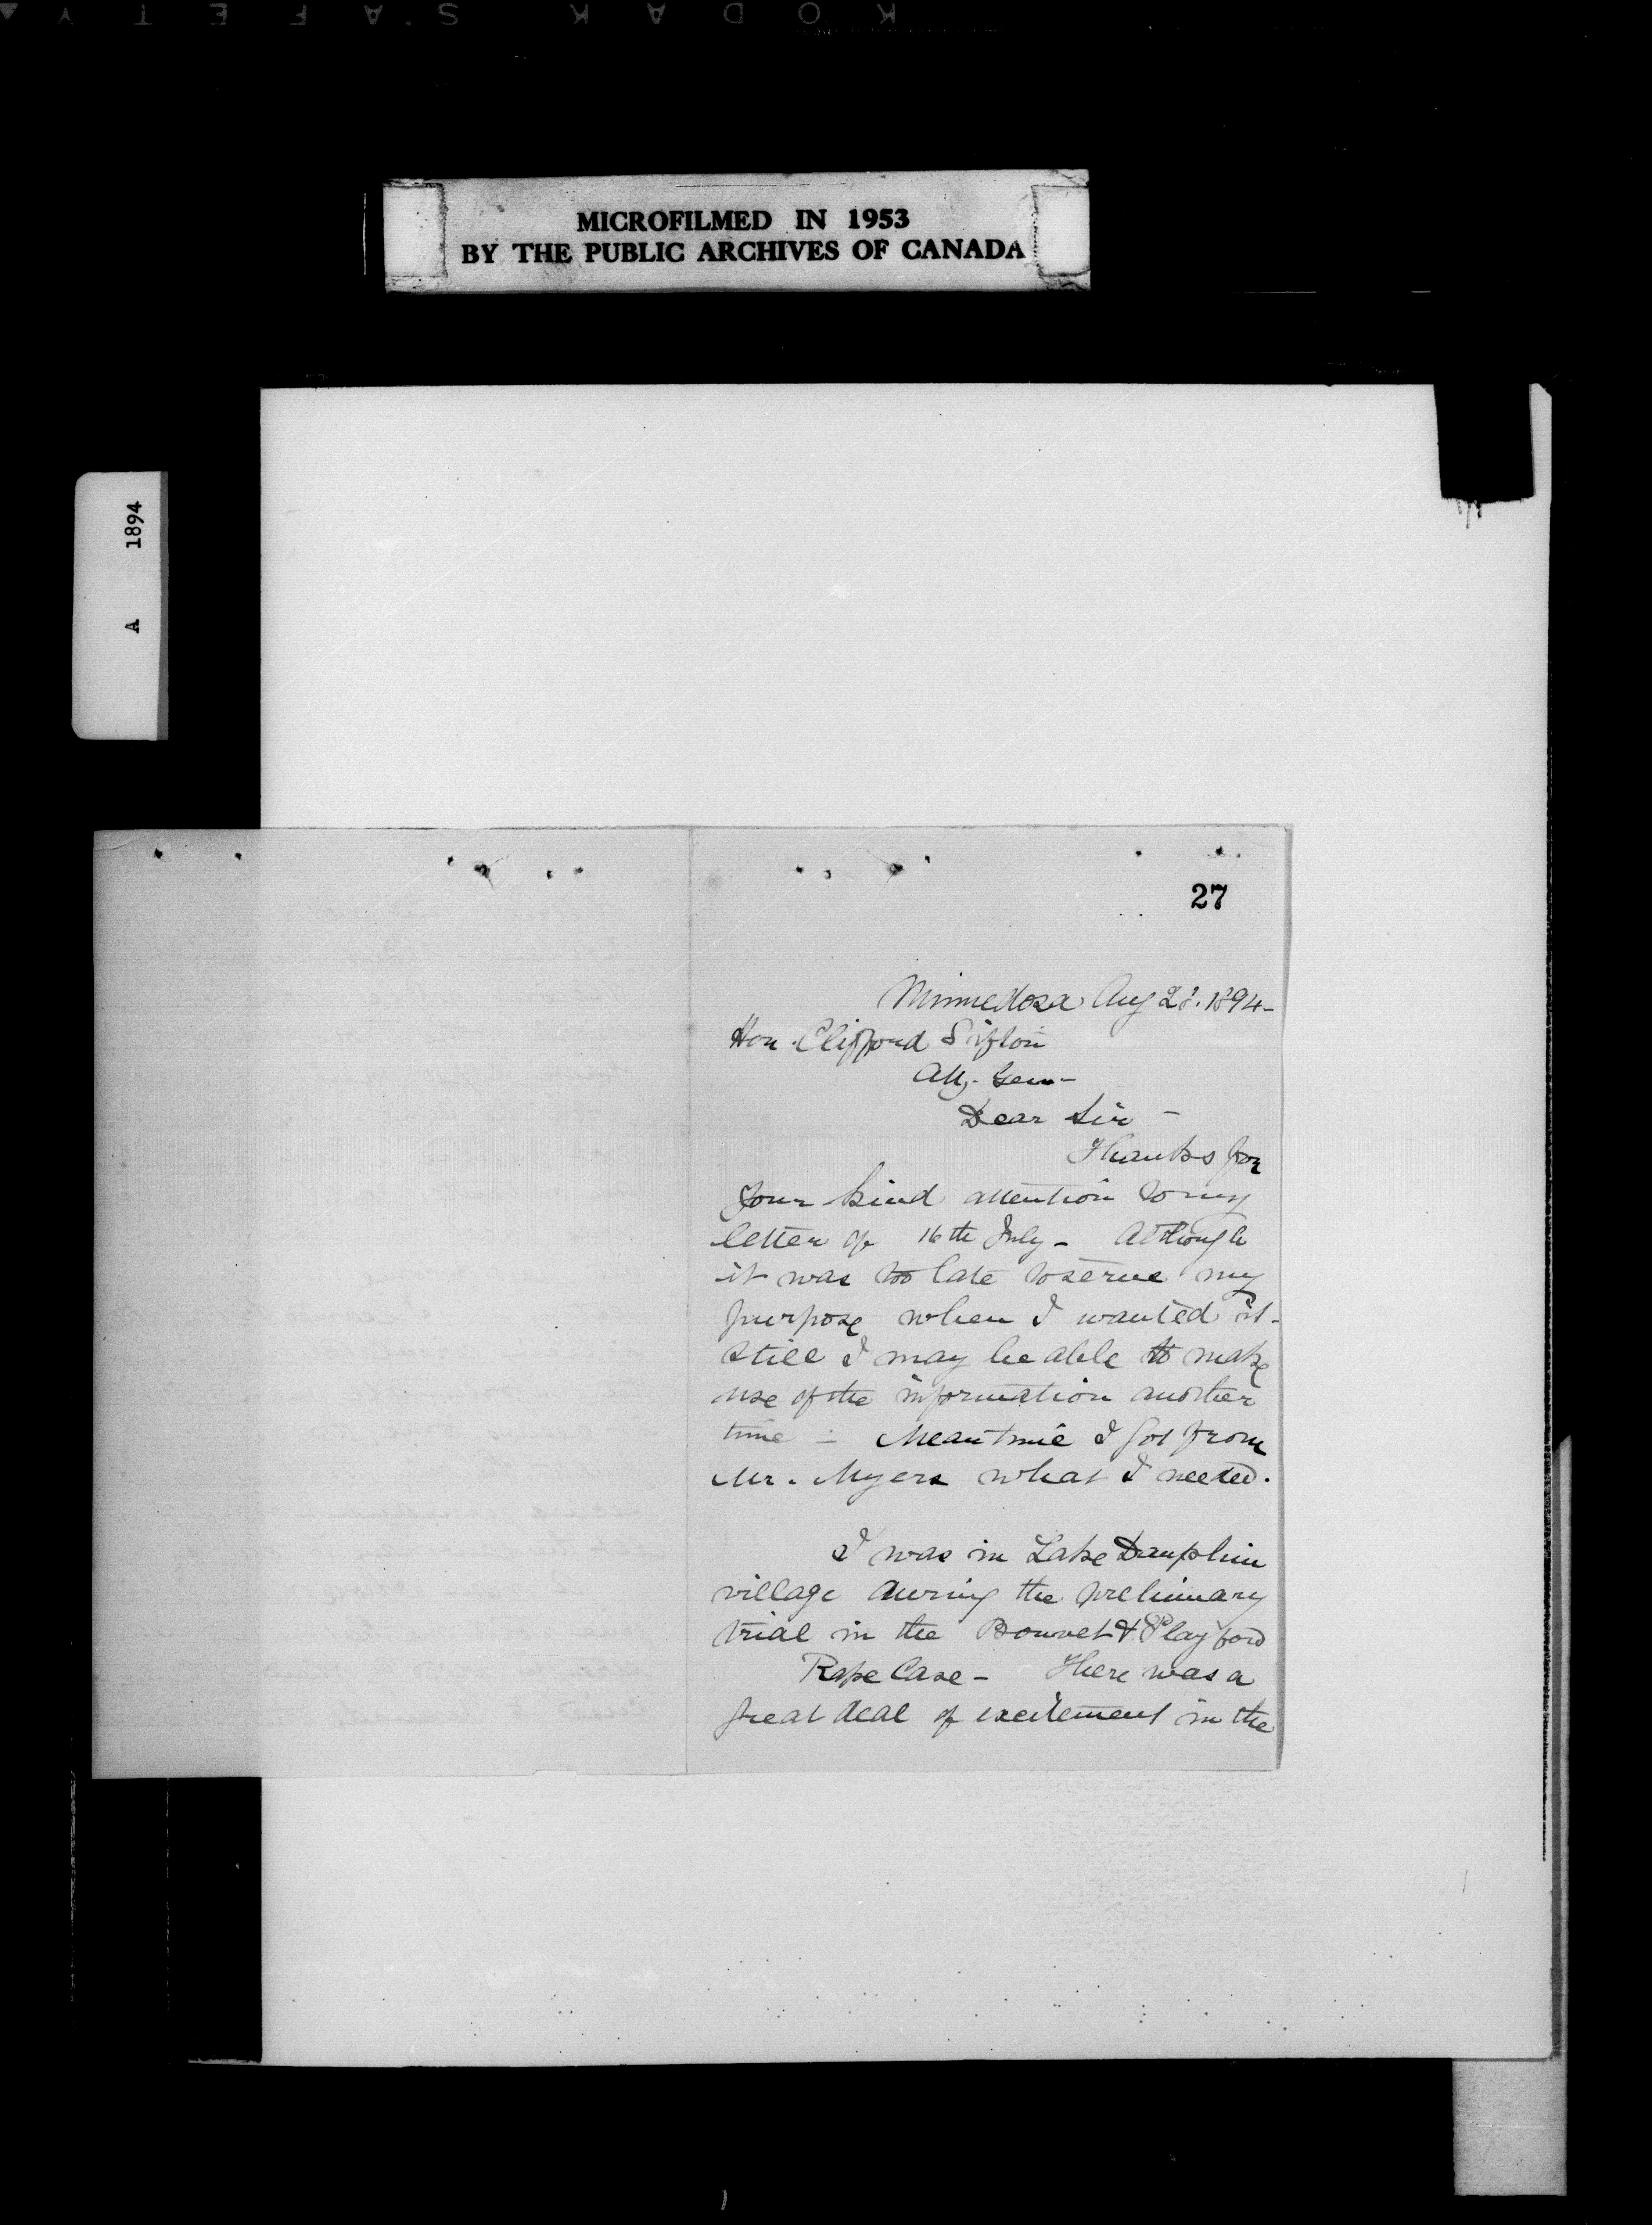 KODAK SAFETY
MICROFILMED IN 1953
BY THE PUBLIC ARCHIVES OF CANADA
A 1894
27
Minnedosa Aug 28. 1894-
Hon. Clifford Sifton
Atty. Gen-
Dear Sir -
Thanks for
your kind attention to my
letter of 16th July - Although
it was too late to serve my
purpose when I wanted it-
still I may be able to make
use of the information another
time - Meantime I got from
Mr. Myers what I needed.
I was in Lake Dauphin
village during the prelimary
trial in the & Playford
Rape Case - There was a
great deal of excitement in the